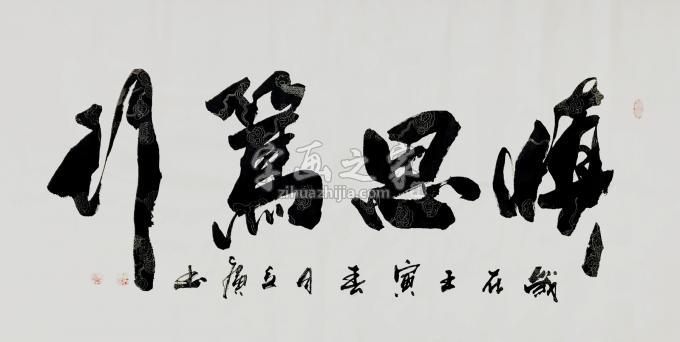 慎思篤行
歲在壬寅春月立廣書
字画之家
zihuazhijia.com